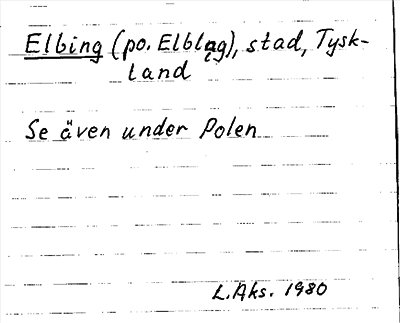 Elbing (po. Elbląg), stad, Tysk-
land
Se även under Polen
L.Aks. 1980